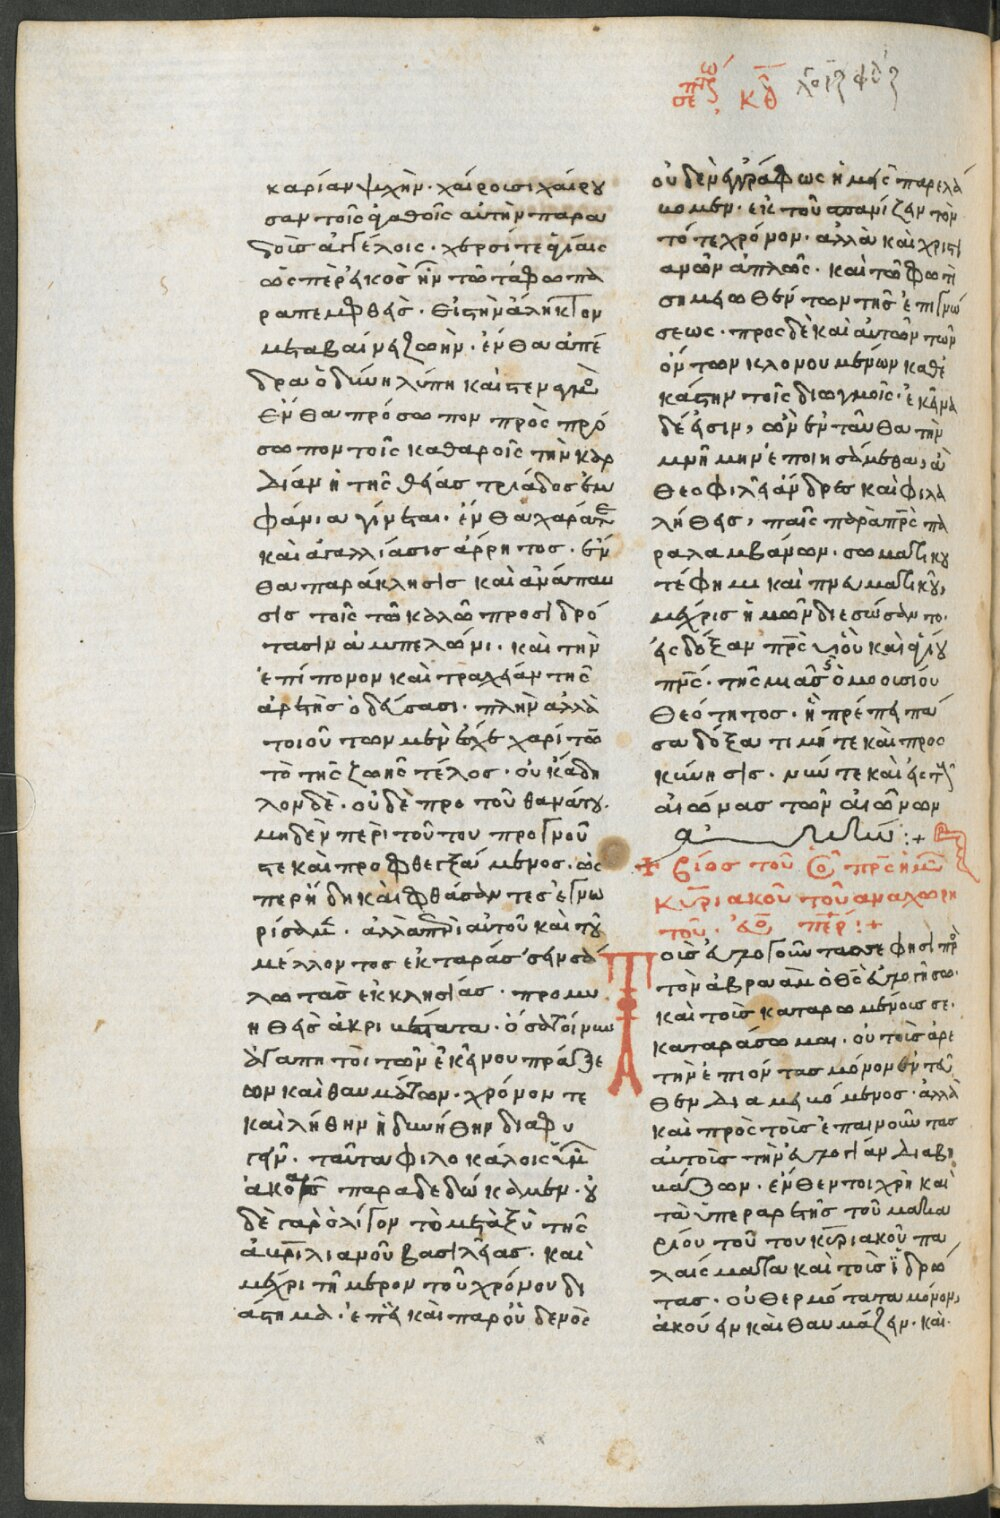 καρίαν ψυχὴν · χαίρουσι χαίρου
σαν τοῖς ἀγαθοῖς αὐτὴν παρα
δοὺς ἀγγέλοις · χερσί τε ἁγίαις
ὥσπερ εἰκὸς ἦν τῶ τάφω πα
ραπεμφθεὶς · εἰς τὴν ἄληκτον
μεταβαίνει ζωὴν · ἔνθα ἀπέ
δρα ὀδύνη λύπη καὶ στεναγμὸς
ἔνθα πρόσωπον πρὸς πρό
σωπον τοῖς καθαροῖς τὴν καρ
δίαν ἡ τῆς θείας τριάδος ἐμ
φάνια γίνεται · ἔνθα χαρὰ
καὶ ἀγαλλίασις ἄρρητος · ἔν
θα παράκλησις καὶ ἀνάπαυ
σις τοῖς τῶ καλῶ προσιδρό
τασιν ἀμπελῶνι · καὶ τὴν
ἐπίπονον καὶ τραχεῖαν τῆς
ἀρετῆς ὁδεύσασι · πλὴν ἀλλὰ
τοιοῦτον μὲν ἔσχε χαρίτων
τὸ τῆς ζωῆς τέλος · οὐκ ἄδη
λον δὲ · οὐδὲ προ τοῦ θανάτου ·
μηδὲν περὶ τούτου προγνούς
τε καὶ προφθεγξάμενος · ὡς
περ ἤδη καὶ φθάσαντες ἐγνω
ρίσαμεν · ἀλλὰ περὶ αὐτοῦ καὶ τοῦ
μέλλοντος ἐκταράσσειν σά
λου τὰς ἐκκλησίας · προμυ
ηθεὶς ἀκριβέστατα ·
ἀγαπητοὶ τῶν ἐκείνου πράξε
ων καὶ θαυμάτων · χρόνον τε
καὶ λήθην ἠδυνήθην διαφυ
γεῖν · ταῦτα φιλοκάλοις ὑμῶν
ἀκοαῖς παραδεδώκαμεν · οὐ
δὲ γὰρ ὀλίγον τὸ μεταξὺ τῆς
αὐρηλιανοῦ βασιλείας · καὶ
μέχρι τήμερον τοῦ χρόνου δι
άστημα · ἐπεὶ καὶ παρ οὐδενὸς
κθ
οὐδὲν ἐγγράφως ἡμεῖς παρελά
βομεν · ἐκ τοῦ ἀφανίζειν τὸν
τότε χρόνον · ἀλλὰ καὶ χριστι
ανῶν ἁπλῶς · καὶ τῶ φωτὶ
σημειωθέντων τῆς ἐπιγνώ
σεως · προς δὲ καὶ αὐτῶν τῶν
όντων κλονουμένων καθε
κάστην τοῖς διωγμοῖς · ἐκεῖνα
δέ εἰσιν, ὧν ἐνταῦθα τὴν
μνήμην ἐποιησάμεθα, ὦ
θεοφιλεῖ ἄνδρες καὶ φιλα
λήθεις, παῖς παρὰ πρς πα
ραλαμβάνων · σωματικοῦ
τέ φημι καὶ πνευματικοῦ,
μέχρις ἡμῶν διεσώσαντο ·
εἰς δόξαν πρς υἱοῦ καὶ ἁγίου
πνς · τῆς μιᾶς ὁμοουσίου
θεότητος · ἧ πρέπει πᾶ
σα δόξα τιμή τε καὶ προσ
κύνησις · νῦν τε καὶ εἰς τοὺς
αἰῶνας τῶν αἰώνων
ἀμήν :+
+ βίος τοῦ ὁσίου πρς ἡμῶν
κυριακοῦ τοῦ ἀναχωρη
τοῦ · εὐλόγησον πάτερ :+
Τοὺς εὐλογοῦντάς σε φησὶ πρὸς
τὸν ἀβραὰμ ὁ θς εὐλογήσω ·
καὶ τοὺς καταρωμένους σε ·
καταράσομαι · οὐ τοῖς ἀρε
τὴν ἐπιοῦντας μόνον ἐντεῦ
θεν διαμειβόμενος · ἀλλὰ
καὶ πρὸς τοὺς ἐπαινοῦντας
αὐτοὺς τὴν εὐλογίαν διαβι
βάζων · ἔνθεν τοι χρὴ καὶ
τὰ ὑπερ ἀρετῆς τοῦ μακα
ρίου τούτου κυριακοῦ πα
λαίσματα καὶ τοὺς ἱδρῶ
τας · οὐ θερμότατα μόνον,
ἀκούειν καὶ θαυμάζειν · καὶ